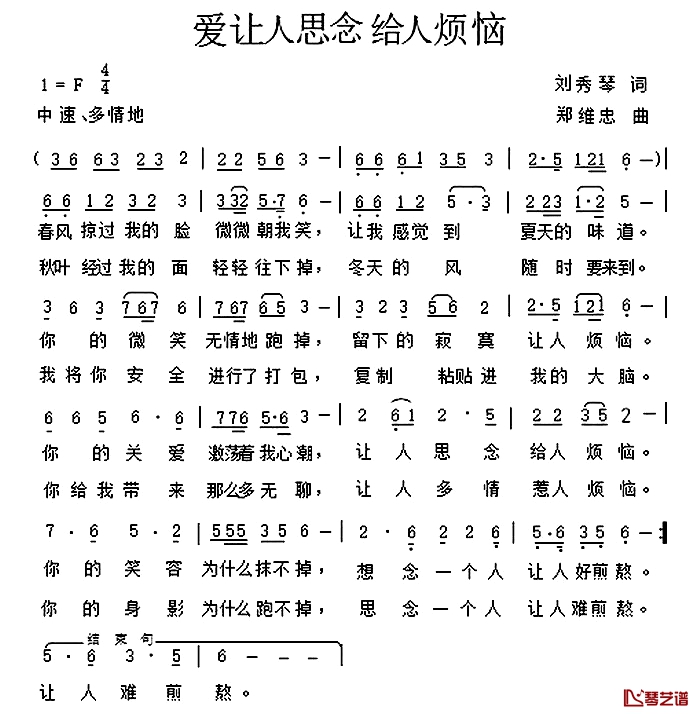 爱让人思念 给人烦恼
1 = F 4/4 刘秀琴 词
中速、多情地 郑维忠 曲
( 36 63 23 2 | 22 56 3 — | 66 61 35 3 | 2·5 121 6 — )
66 12 32 3 | 332 5·7 6 — | 66 12 5·3 | 223 1·2 5 —
春风 掠过 我的 脸 微微 朝我 笑， 让我 感觉 到 夏天的 味 道。
秋叶 经过 我的 面 轻轻 往下 掉， 冬天 的 风 随 时 要来到。
3 6 3 767 6 | 767 65 3 — | 3 23 56 2 | 2·5 121 6 —
你 的 微 笑 无情地 跑 掉， 留 下的 寂 寞 让人 烦 恼。
我 将 你 安 全 进行了 打 包， 复 制 粘贴 进 我的 大 脑。
6 6 5 6·6 | 776 5·6 3 — | 2 61 2·5 | 22 35 2 —
你 的 关 爱 激荡着 我心 朝， 让 人 思 念 给人 烦 恼。
你 给 我 带 来 那么多 无 聊， 让 人 多 情 惹人 烦 恼。
7·6 5·2 | 555 35 6 — | 2·6 2 26 | 5·6 35 6 — :|
你 的 笑 容 为什么 抹不 掉， 想 念 一个 人 让人 好煎 熬。
你 的 身 影 为什么 跑不 掉， 思 念 一个 人 让人 难煎 熬。
结 束 句
5·6 3·5 | 6 — — — ‖
让 人 难 煎 熬。
琴艺谱